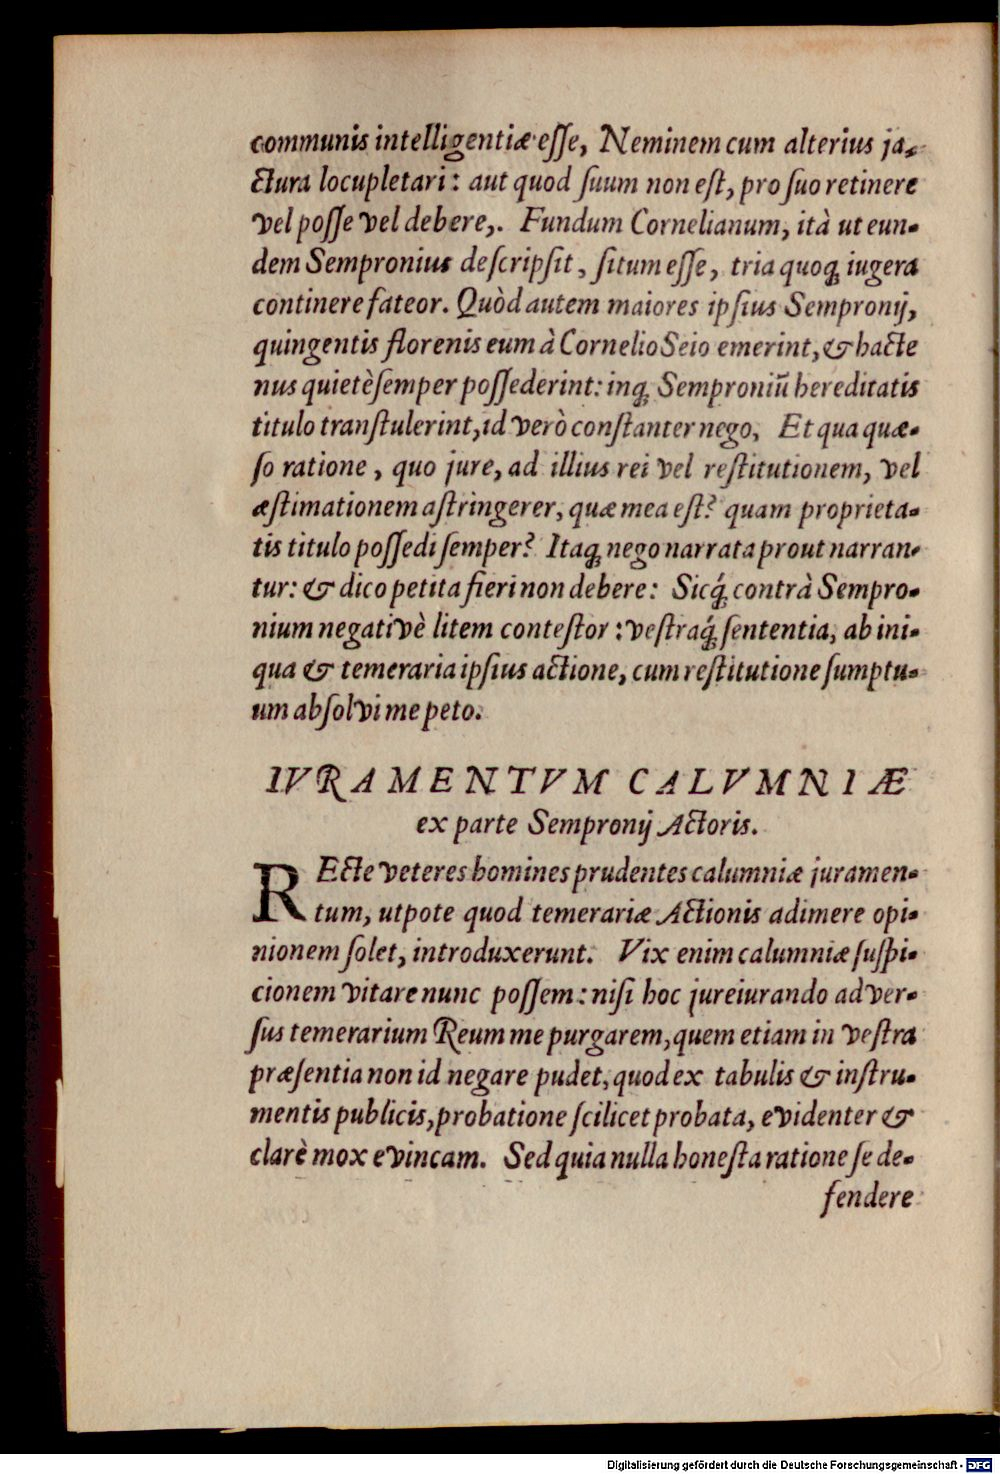 communis intelligentiæ eſſe, Neminem cum alterius ja-
ctura locupletari: aut quod ſuum non eſt, pro ſuo retinere
vel poſſe vel debere,. Fundum Cornelianum, ità ut eun-
dem Sempronius deſcripſit, ſitum eſſe, tria quoq́ꝫ iugera
continere fateor. Quòd autem maiores ipſius Sempronij,
quingentis florenis eum à Cornelio Seio emerint, & hacte
nus quietè ſemper poſſederint: inqꝫ Semproniū hereditatis
titulo tranſtulerint, id verò conſtanter nego, Et qua quæ-
ſo ratione, quo jure, ad illius rei vel reſtitutionem, vel
æſtimationem aſtringerer, quæ mea eſt? quam proprieta-
tis titulo poſſedi ſemper? Itaqꝫ nego narrata prout narran-
tur: & dico petita fieri non debere: Sicq́ꝫ contrà Sempro-
nium negativè litem conteſtor: veſtraq́ꝫ ſententia, ab ini-
qua & temeraria ipſius actione, cum reſtitutione ſumptu-
um abſolvi me peto.
IVRAMENTVM CALVMNIÆ
ex parte Sempronij Actoris.
REcte veteres homines prudentes calumniæ juramen-
tum, utpote quod temerariæ Actionis adimere opi-
nionem ſolet, introduxerunt. Vix enim calumniæ ſuſpi-
cionem vitare nunc poſſem: niſi hoc jureiurando adver-
ſus temerarium Reum me purgarem, quem etiam in veſtra
præſentia non id negare pudet, quod ex tabulis & inſtru-
mentis publicis, probatione ſcilicet probata, evidenter &
clarè mox evincam. Sed quia nulla honeſta ratione ſe de-
fendere
Digitalisierung gefördert durch die Deutsche Forschungsgemeinschaft - DFG